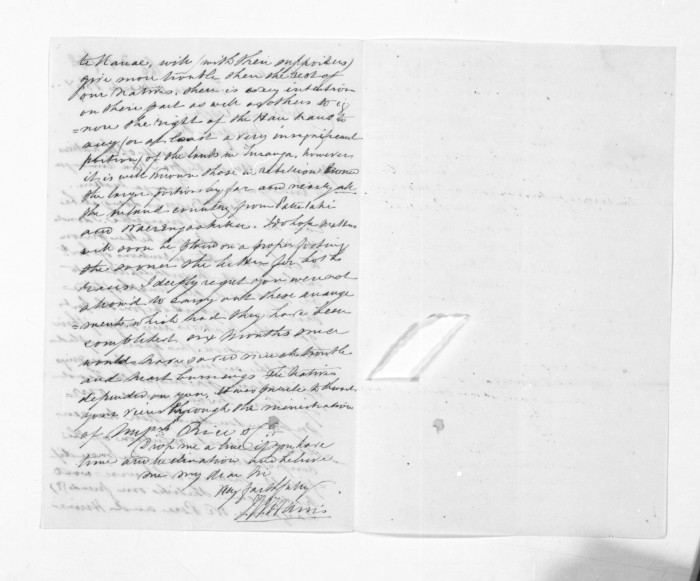 te Hanae, will (with their supporters)
give more trouble then the rest of
our Natives. there is every intention
on their part as well as others to ig
=nore the right of the Hau haus to
any (or at least a very insignificant
portion) of the lands in Turanga, however
it is well known those in rebellion
the larger portion by far and nearly all
the inland country from Patutahi
and Waerengaahika. I do hope matters
will soon be placed on a proper footing
the sooner the better for both
races. I deeply regret you were not
allowed to carry out these arrange
=ments, which had they have been
completed six months since
would have saved much trouble
and heart burnings. The Natives
depended on you, it was futile to
your views through the ministration
of Messrs Rice &
Drop me a line if you have
time and inclination and believe
me my dear Sir
Very faithfully
Harris